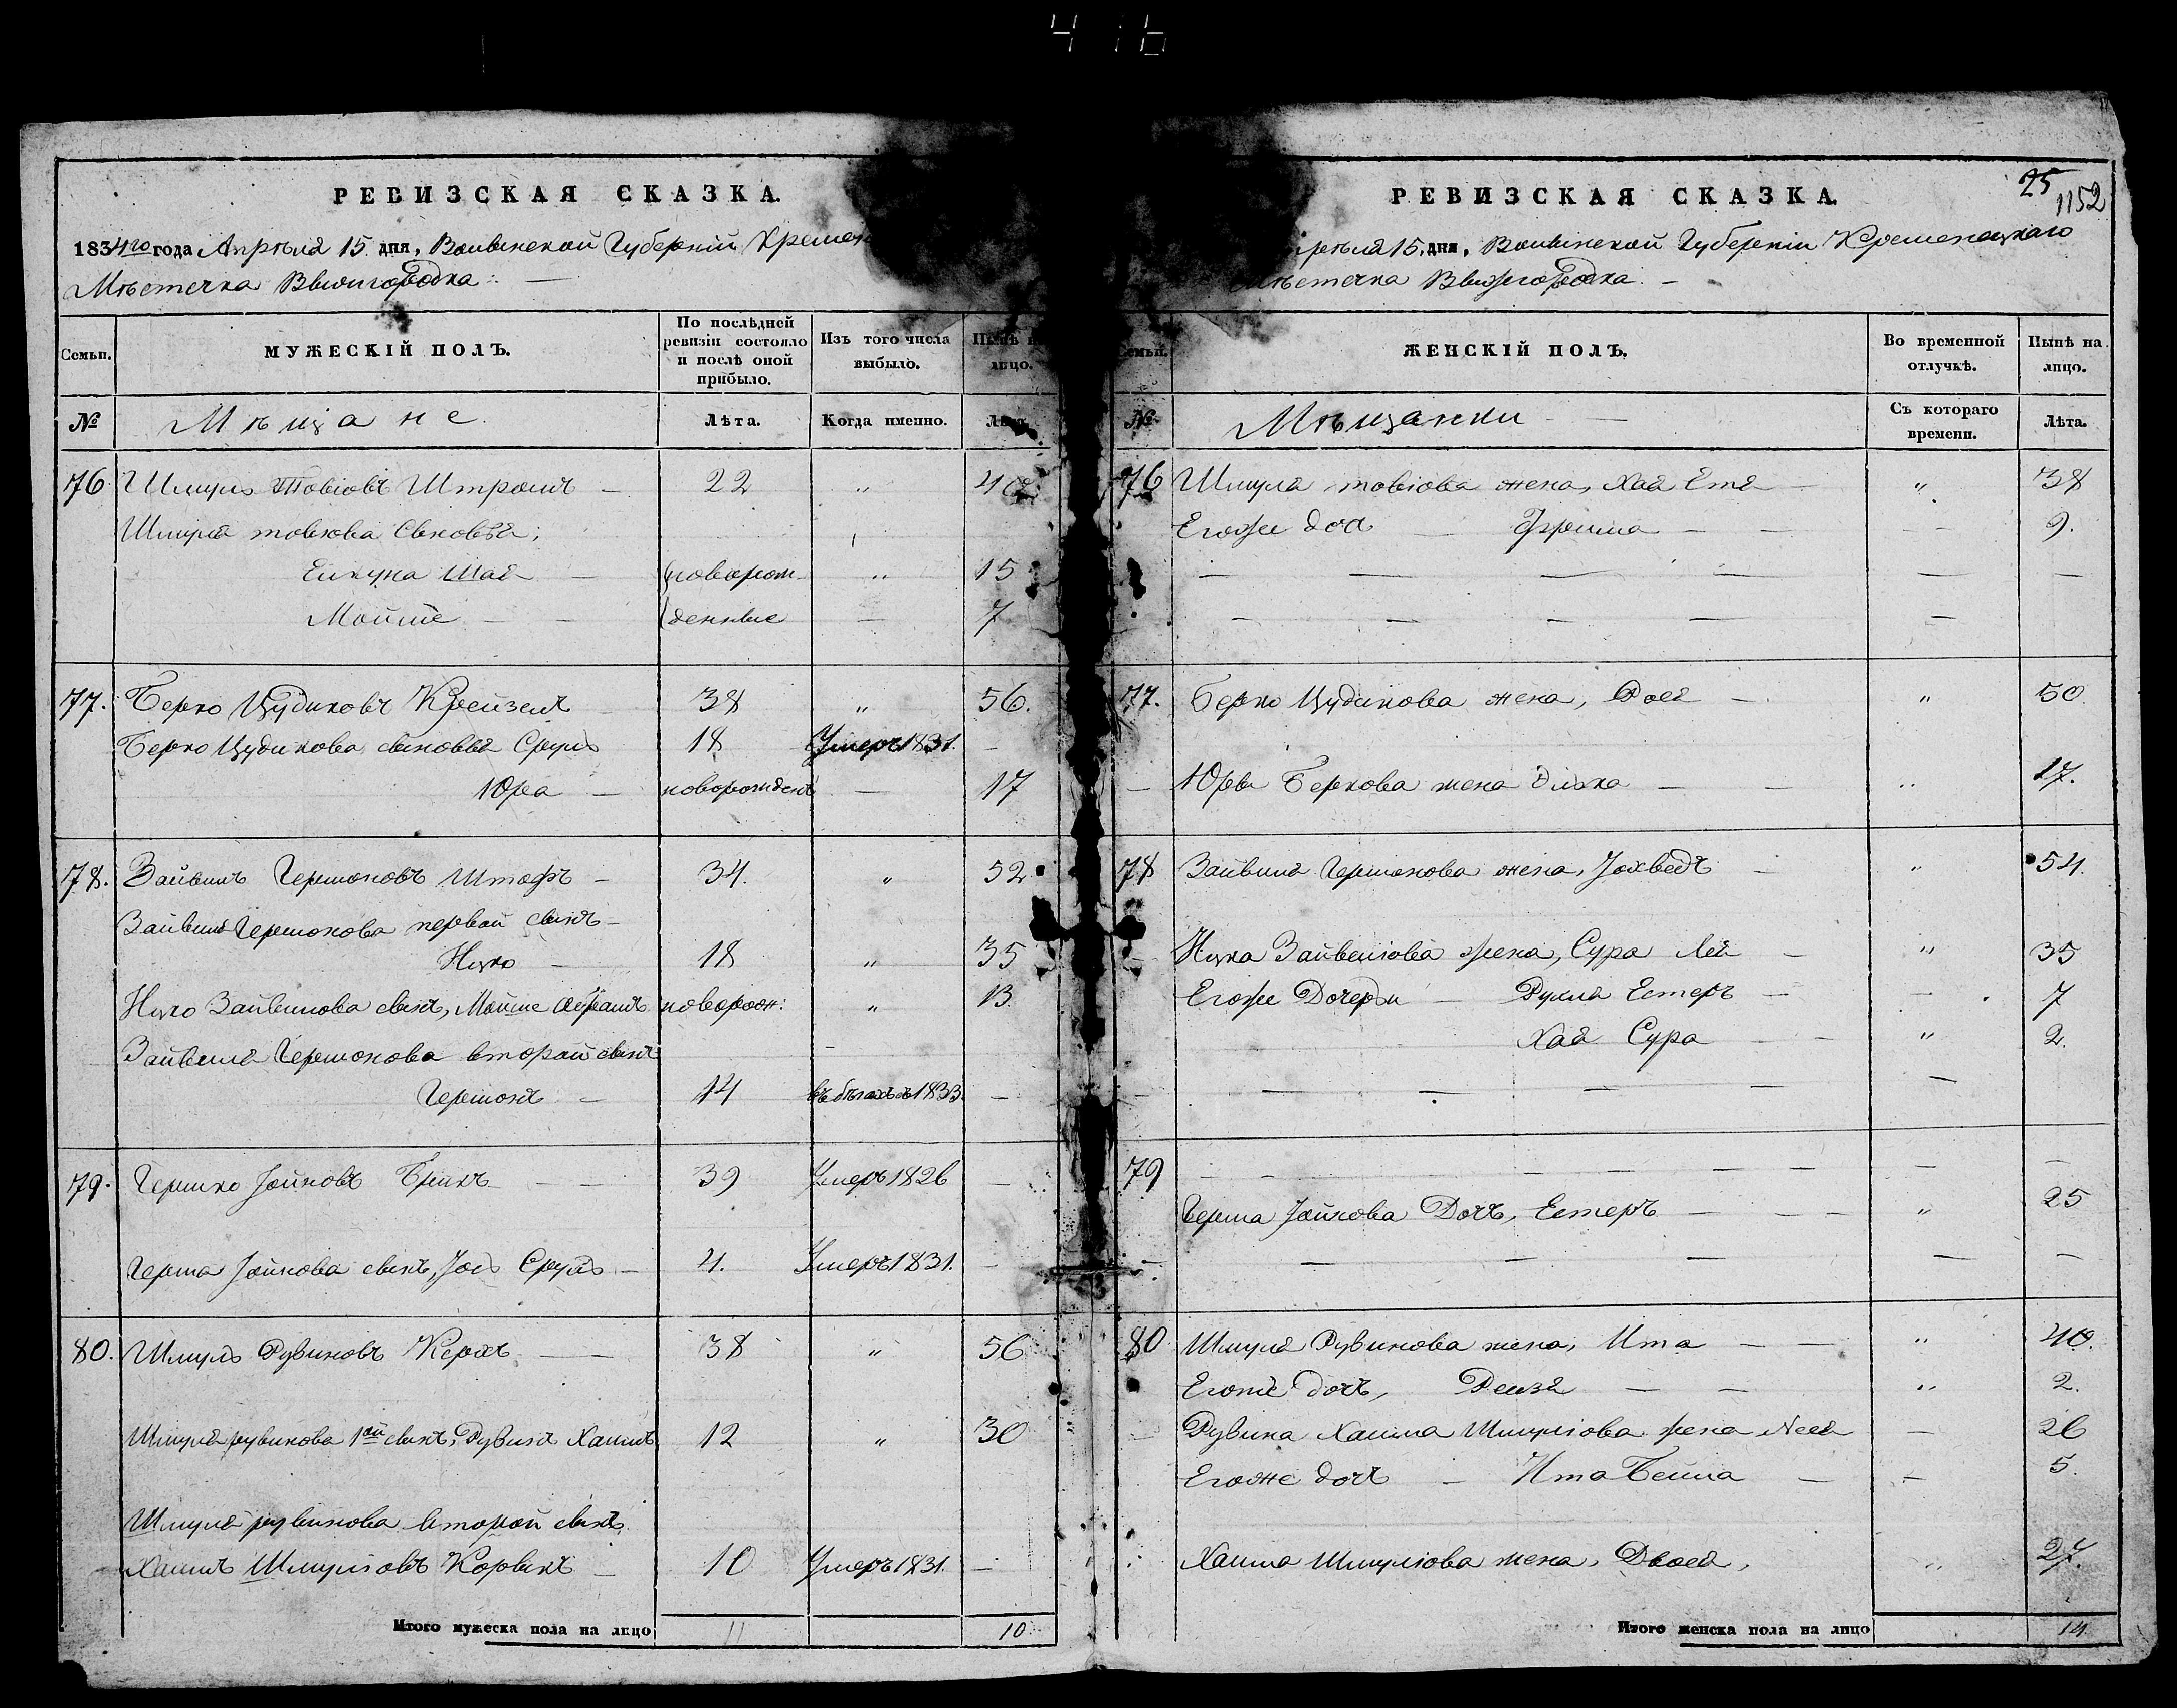 РЕВИЗСКАЯ СКАЗКА.
1834го года Апрѣля 15. дня, Волынской Губерніи
Мѣстечка Вышгородка. —
Семьи. МУЖЕСКІЙ ПОЛЪ. По послѣдней ревизіи состояло и послѣ оной прибыло. Изъ того числа выбыло. Нынѣ на лицо.
№ Мѣщане. Лѣта. Когда именно. Лѣта.
76. Шмуль Товіовъ — 22 „ 40
Шмуля товіова сыновья:
Шая — новорож- „ 15
Мойше — — денные — 7
77. Берко Цудиковъ Крейзель 38 „ 56.
Берко Цудикова сыновья Сруль 18 Умеръ 1831. —
Юра — новорожден — 17
78. Зайвель Гершоковъ Штофъ — 34. „ 52
Зайвеля Гершонова первой сынъ —
Ицко — 18 „ 35
Ицко Зайвелюва сынъ, Мойше Абрамъ новорож: „ 13
Зайвеля Гершонова второй сынъ
Гершонъ — 14 въ бѣгахъ 1833. —
79. Гершко Іойновъ — — 39 Умеръ 1826 —
Герша Іойнова сынъ, Іось Сруль — 4. Умеръ 1831. —
80. Шмуль Рувиновъ — — 38 „ 56
Шмуля рувинова 1ый сынъ, Рувинъ Хаимъ 12 „ 30
Шмуля рувинова второй сынъ
Хаимъ Шмуліовъ — 10 Умеръ 1831. —
Итого мужеска пола на лицо 11 10
РЕВИЗСКАЯ СКАЗКА.
25
1152
15. дня, Волынской Губерніи Кременецкаго
Мѣстечка Вышгородка. —
Семьи. ЖЕНСКІЙ ПОЛЪ. Во временной отлучкѣ. Нынѣ на лицо.
№ Мѣщанки — Съ котораго времени. Лѣта.
76 Шмуля товіова жена, Хая Етя — „ 38
Егоже доч — Фрима — — — 9.
77. Берко Цудикова жена, — „ 50
— Юры Беркова жена — — „ 17.
78 Зайвеля Гершонова жена, Іохведъ — „ 54
— Ицка Зайвеліова жена, Сура Лея — „ 35
Егоже Дочери — Рухля Естеръ — — 7
Хая Сура — — „ 2.
79 — — — — — — —
Герша Іойнова Дочь, Естеръ — — — „ 25
80 Шмуля Рувинова жена, Ита — — „ 40.
Егоже дочь, Рейзя — — „ 2.
— Рувина Хаима Шмуліова жена — 26
Егоже дочь — Ита Бейла — — 5.
Хаима Шмуліова жена, Двося, „ 27.
Итого женска пола на лицо 14